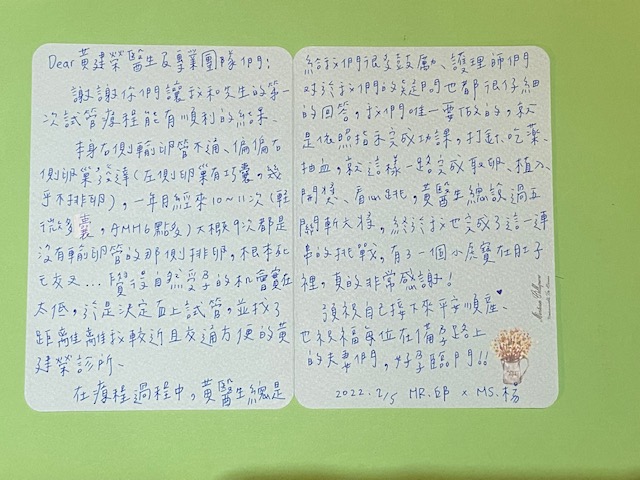 Dear 黃建榮醫生及專業團隊們：
謝謝你們讓我和先生的第一
次試管療程能有順利的結果。
本身右側輸卵管不通、偏偏右
側卵巢發達（左側卵巢有巧囊，幾
乎不排卵），一年月經來10～11次（輕
微多囊，AMH6點多）大概9次都是
沒有輸卵管的那側排卵，根本死
亡交叉...覺得自然受孕的机會實在
太低，於是決定直上試管，並找了
距離離我較近且交通方便的黃
建榮診所、
在療程過程中，黃醫生總是
給我們很多鼓勵、護理師們
對於我們的疑問也都很仔細
的回答，我們唯一要做的，就
是依照指示完成功課，打針、吃藥、
抽血，就這樣一路完成取卵、植入、
開獎、看心跳，黃醫生總說過五
關斬六將，終於我也完成了這一連
串的挑戰，有了一個小虎寶在肚子
裡，真的非常感謝！
預祝自己接下來平安順產、
也祝福每位在備孕路上
的夫妻們，好孕臨門!!
2022.2/5 MR.邱 × MS.楊